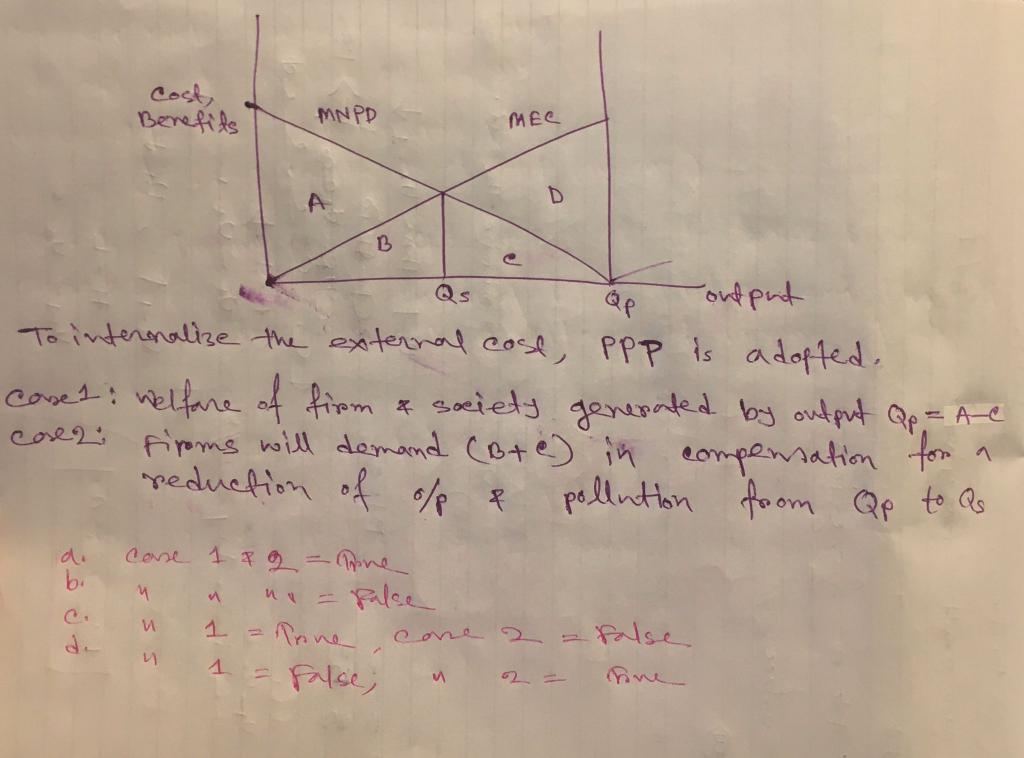 Cost,
Benefits
MNPD
MEC
A
B
C
D
Qs
Qp
output
To internalize the external cost, PPP is adopted.
Case1: Welfare of firm & society generated by output Qp = A-C
Case2: Firms will demand (B+C) in compensation for a
reduction of o/p & pollution from Qp to Qs
a. Case 1 & 2 = True
b. " " " " = False
c. " 1 = True, Case 2 = False
d. " 1 = False, " 2 = True